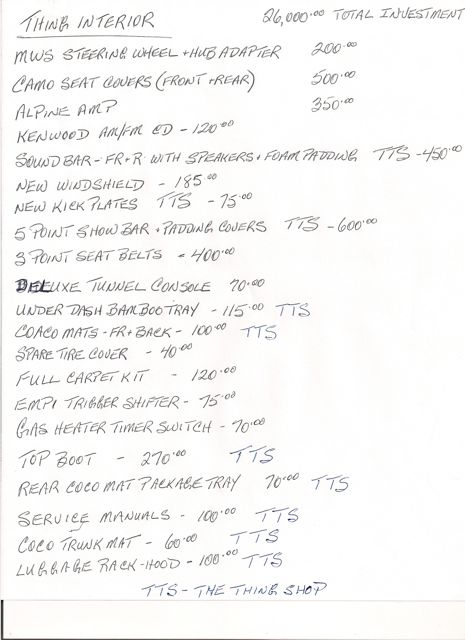 THING INTERIOR 26,000.00 TOTAL INVESTMENT
MWS STEERING WHEEL + HUB ADAPTER 200.00
CAMO SEAT COVERS (FRONT + REAR) 500.00
ALPINE AMP 350.00
KENWOOD AM/FM CD - 120.00
SOUND BAR - FR + R WITH SPEAKERS + FOAM PADDING TTS - 450.00
NEW WINDSHIELD - 185.00
NEW KICK PLATES TTS - 75.00
5 POINT SHOW BAR + PADDING COVERS TTS - 600.00
3 POINT SEAT BELTS - 400.00
DELUXE TUNNEL CONSOLE 70.00
UNDER DASH BAMBOO TRAY - 115.00 TTS
COACO MATS - FR + BACK - 100.00 TTS
SPARE TIRE COVER - 40.00
FULL CARPET KIT - 120.00
EMPI TRIGGER SHIFTER - 75.00
GAS HEATER TIMER SWITCH - 70.00
TOP BOOT - 270.00 TTS
REAR COCO MAT PACKAGE TRAY 70.00 TTS
SERVICE MANUALS - 100.00 TTS
COCO TRUNK MAT - 60.00 TTS
LUGGAGE RACK - HOOD - 100.00 TTS
TTS - THE THING SHOP